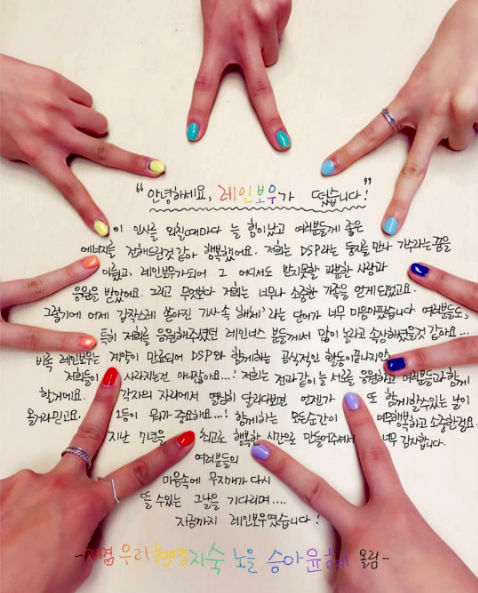 "안녕하세요, 레인보우가 떴습니다!"
이 인사를 외칠때마다 늘 힘이났고 여러분들게 좋은
에너지를 전해드린것 같아 행복했어요. 저희는 DSP라는 둥지를 만나 가수라는 꿈을
이뤘고, 레인보우가되어 그 어디서도 받지못할 과분한 사랑과
응원을 받았어요. 그리고 무엇보다 저희는 너무나 소중한 가족을 얻게되었고요.
그렇기에 어제 갑작스레 쏟아진 기사 속 '해체'라는 단어가 너무 마음아팠습니다. 여러분들도,
특히 저희를 응원해주셨던 레인너스 분들께서 많이 놀라고 속상해했을것 같아요...
비록 레인보우는 계약이 만료되어 DSP와 함께하는 공식적인 활동이 끝나지만
저희들이 사라지는건 아니잖아요...! 저희는 전과같이 늘 서로를 응원하고 여러분들과 함께
할거에요. 각자의 자리에서 열심히 달리다보면 언젠가 또 함께할수있는 날이
올거라믿고요. 1등이 뭐가 중요한가요...! 함께하는 모든순간이 행복하고 소중한걸요.
지난 7년을 최고로 행복한 시간으로 만들어주셔서 너무 감사합니다.
여러분들의
마음속에 무지개가 다시
뜰 수있는 그날을 기다리며....
지금까지 레인보우였습니다!
- 우리 현영 지숙 노을 승아 윤혜 올림 -